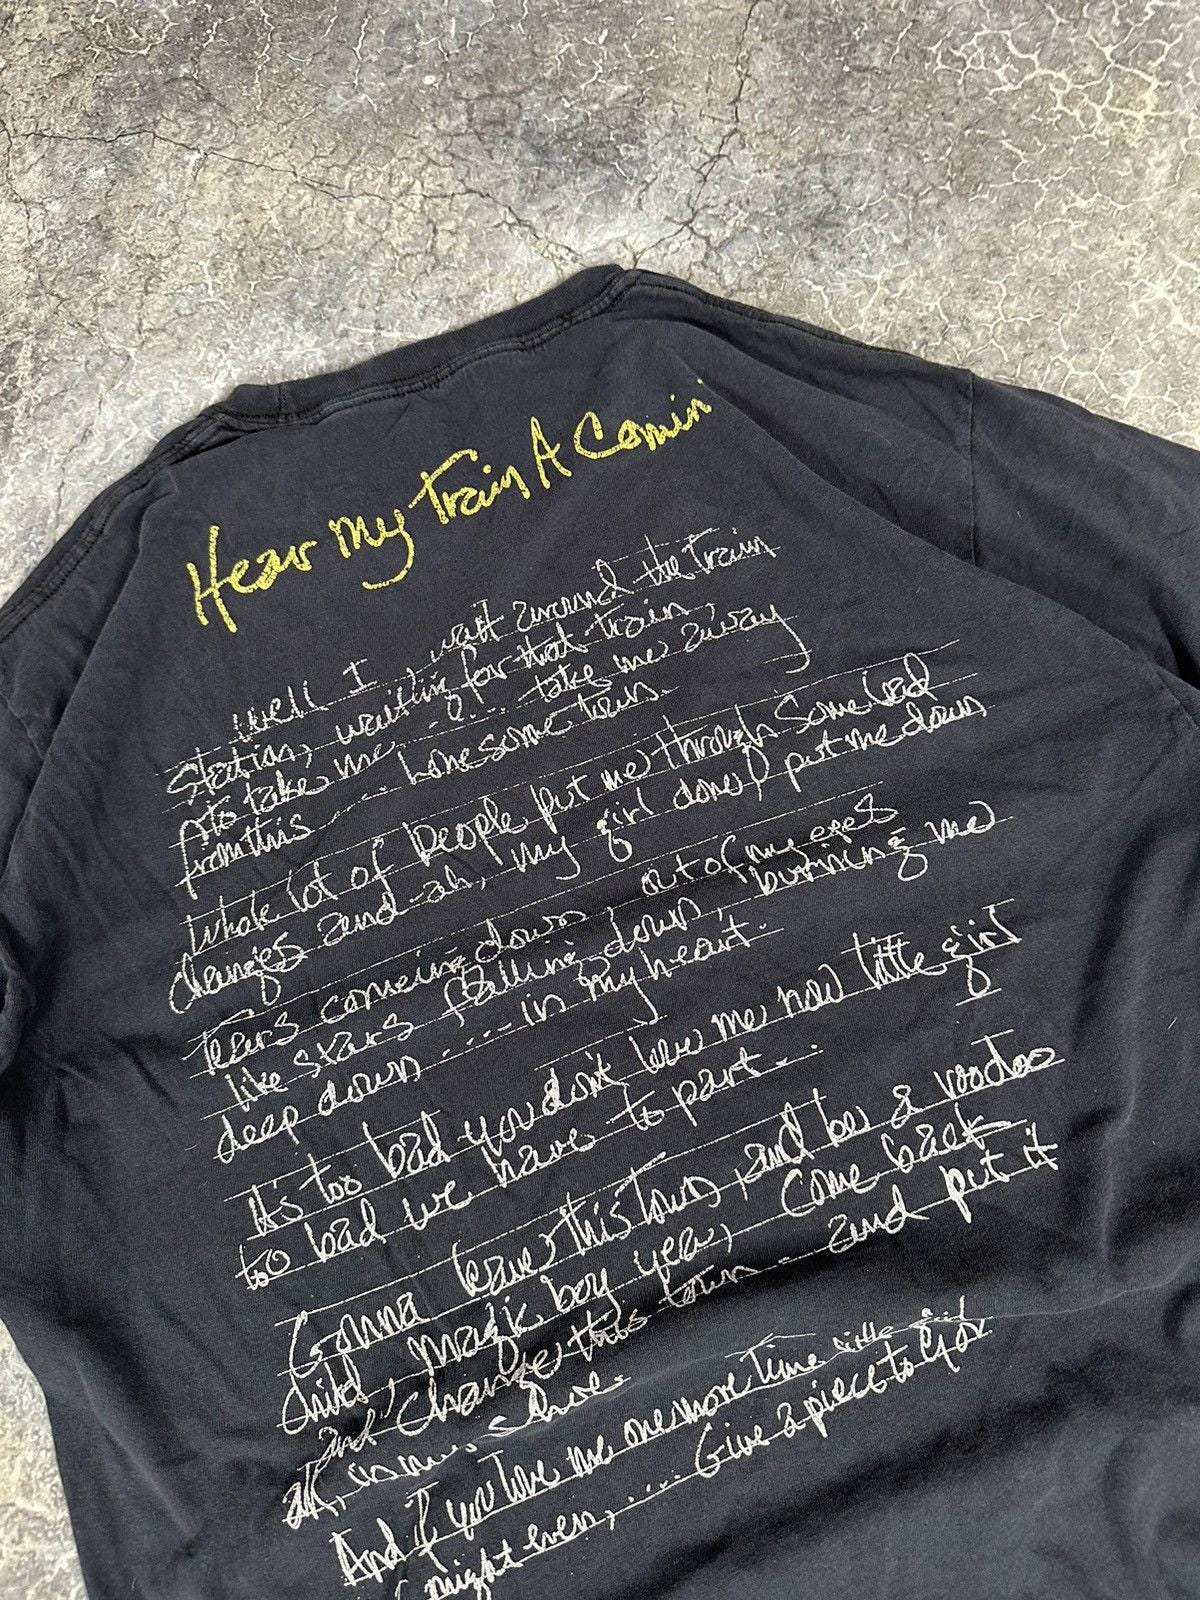 Hear My Train A Comin'
Well I wait around the Train
Station, waiting for that train,
to take me.... take me away
from this .... Lonesome town.
Whole lot of People put me through Some bad
changes and-ah, my girl done, put me down
Tears comeing down out of my eyes
like stars falling down, burning me
deep down .... in my heart.
It's too bad you don't love me now little girl
too bad we have to part...
Gonna leave this Town, and be a voodoo
child, magic boy yea, come back
and change this town. and put it
all, in my shoe.
And if you love me one more Time little girl
might even, .... Give a piece to you